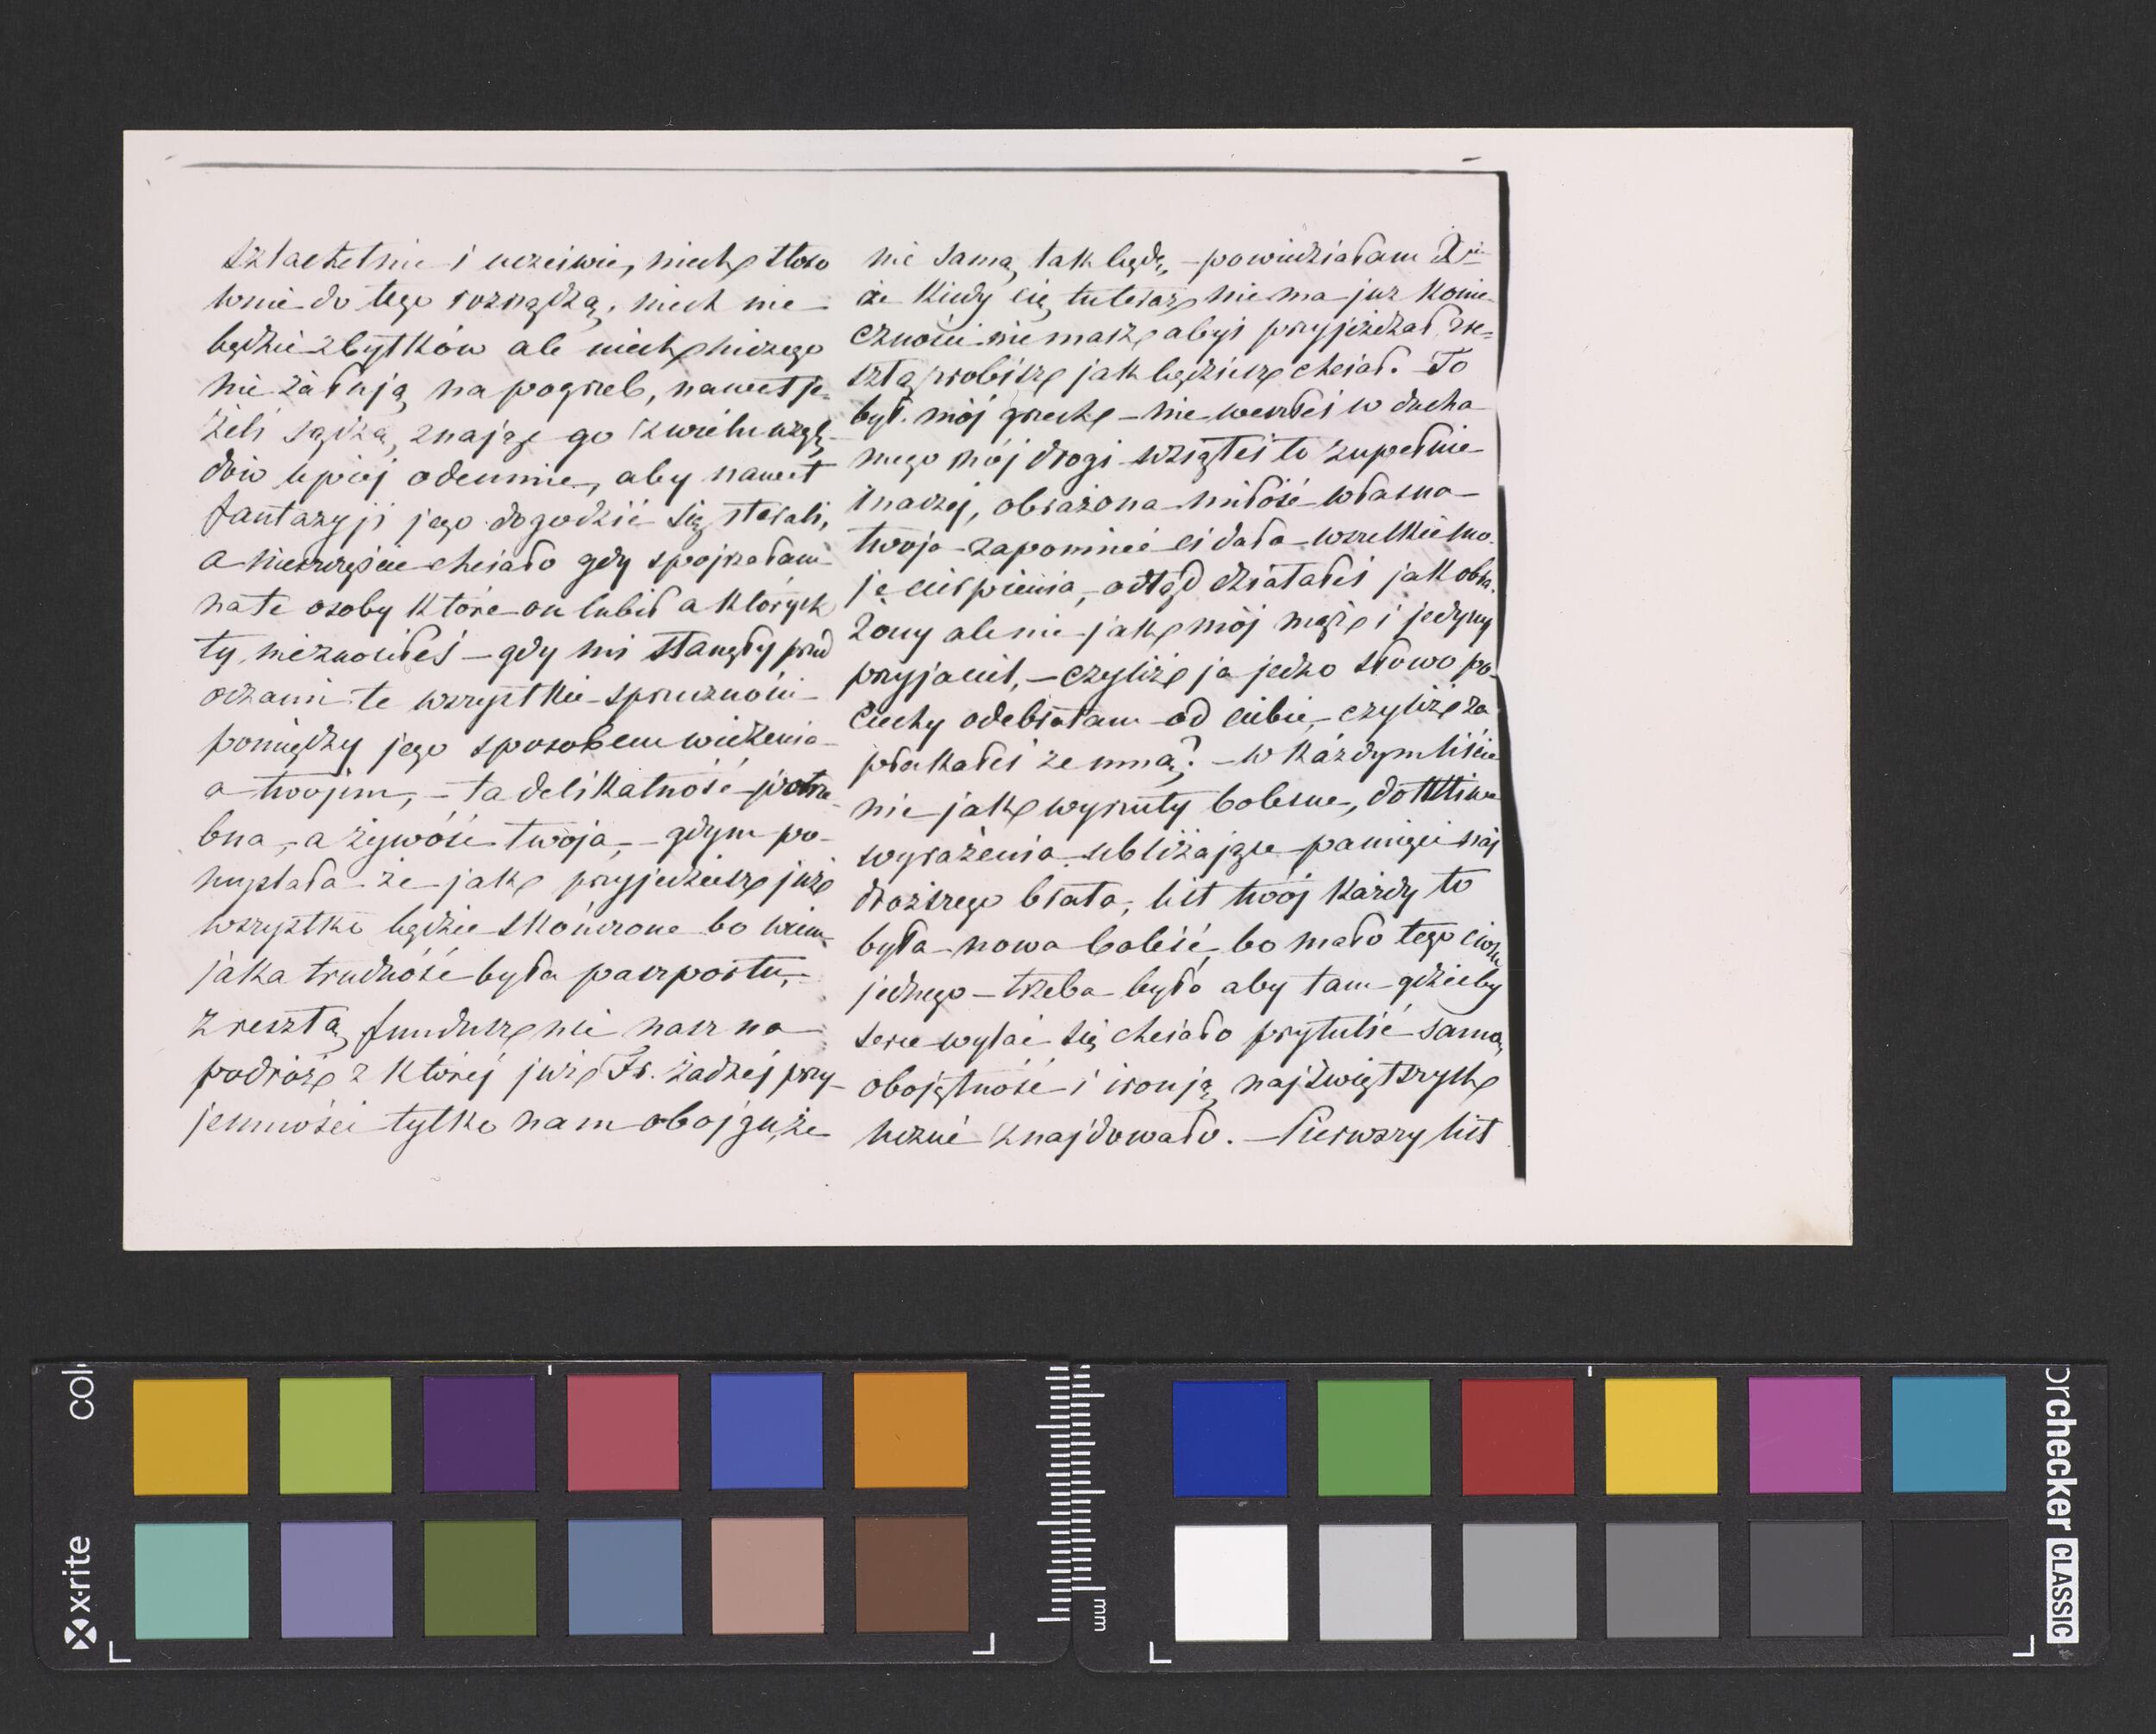 szlachetnie i uczciwie, niech stoso
wnie do tego rozrządzą, niech nie
będzie zbytków ale niech niczego
nie żałują na pogrzeb, nawet je-
żeli sądzą, znając go z wielu wzglę-
dów lepiej odemnie, aby nawet
fantazyji jego dogodzić się starali,
a nieszczęście chciało gdy spojrzałam
na te osoby które on lubił a których
ty nieznosiłeś – gdy mi stanęły przed
oczami te wszystkie sprzeczności
pomiędzy jego sposobem widzenia
a twojim, – ta delikatność potrze-
bna, a żywość twoja, – gdym po-
myslała że jak przyjedziesz już
wszystko będzie skończone bo wiem
jaka trudność była paszportu,
zresztą fundusz nie nasz na
podróż z której już Fr. żadnej przy-
jemności tylko nam obojgu, że
nie samą tak będę, – powiedziałam Ci
że kiedy cię tu teraz nie ma już konie-
czności nie masz abyś przyjeżdżał, zre-
sztą zrobisz jak będziesz chciał. To
był mój grzech – nie weszłeś w ducha
mego mój drogi wziąłeś to zupełnie
inaczej, obrażona miłość własna
twoja zapomnieć ci dała wszelkie mo-
je cierpienia, odtąd działałeś jak obra-
żony ale nie jak mój mąż i jedyny
przyjaciel, – czyliż ja jedno słowo po-
ciechy odebrałam od ciebie, czyliż za
płakałeś ze mną? – w każdym liście
nie jak wyrzuty bolesne, dotkliwe
wyrażenia ubliżające pamięci naj
droższego brata, list twój każdy to
była nowa boleść, bo mało tego ciosu
jednego – trzeba było aby tam gdzieby
serce wylać się chciało przytulić samą
obojętność i ironją najświętszych
uczuć znajdowało. – Pierwszy list